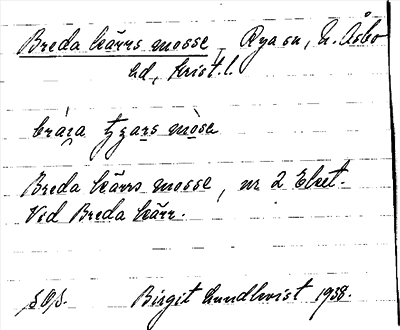 Breda kärrs mosse, Rya sn, N. Åsbo
hd, Krist. l.
Breda kärrs mosse, nr 2 Eket.
Vid Breda kärr.
Birgit Lundkvist 1938.